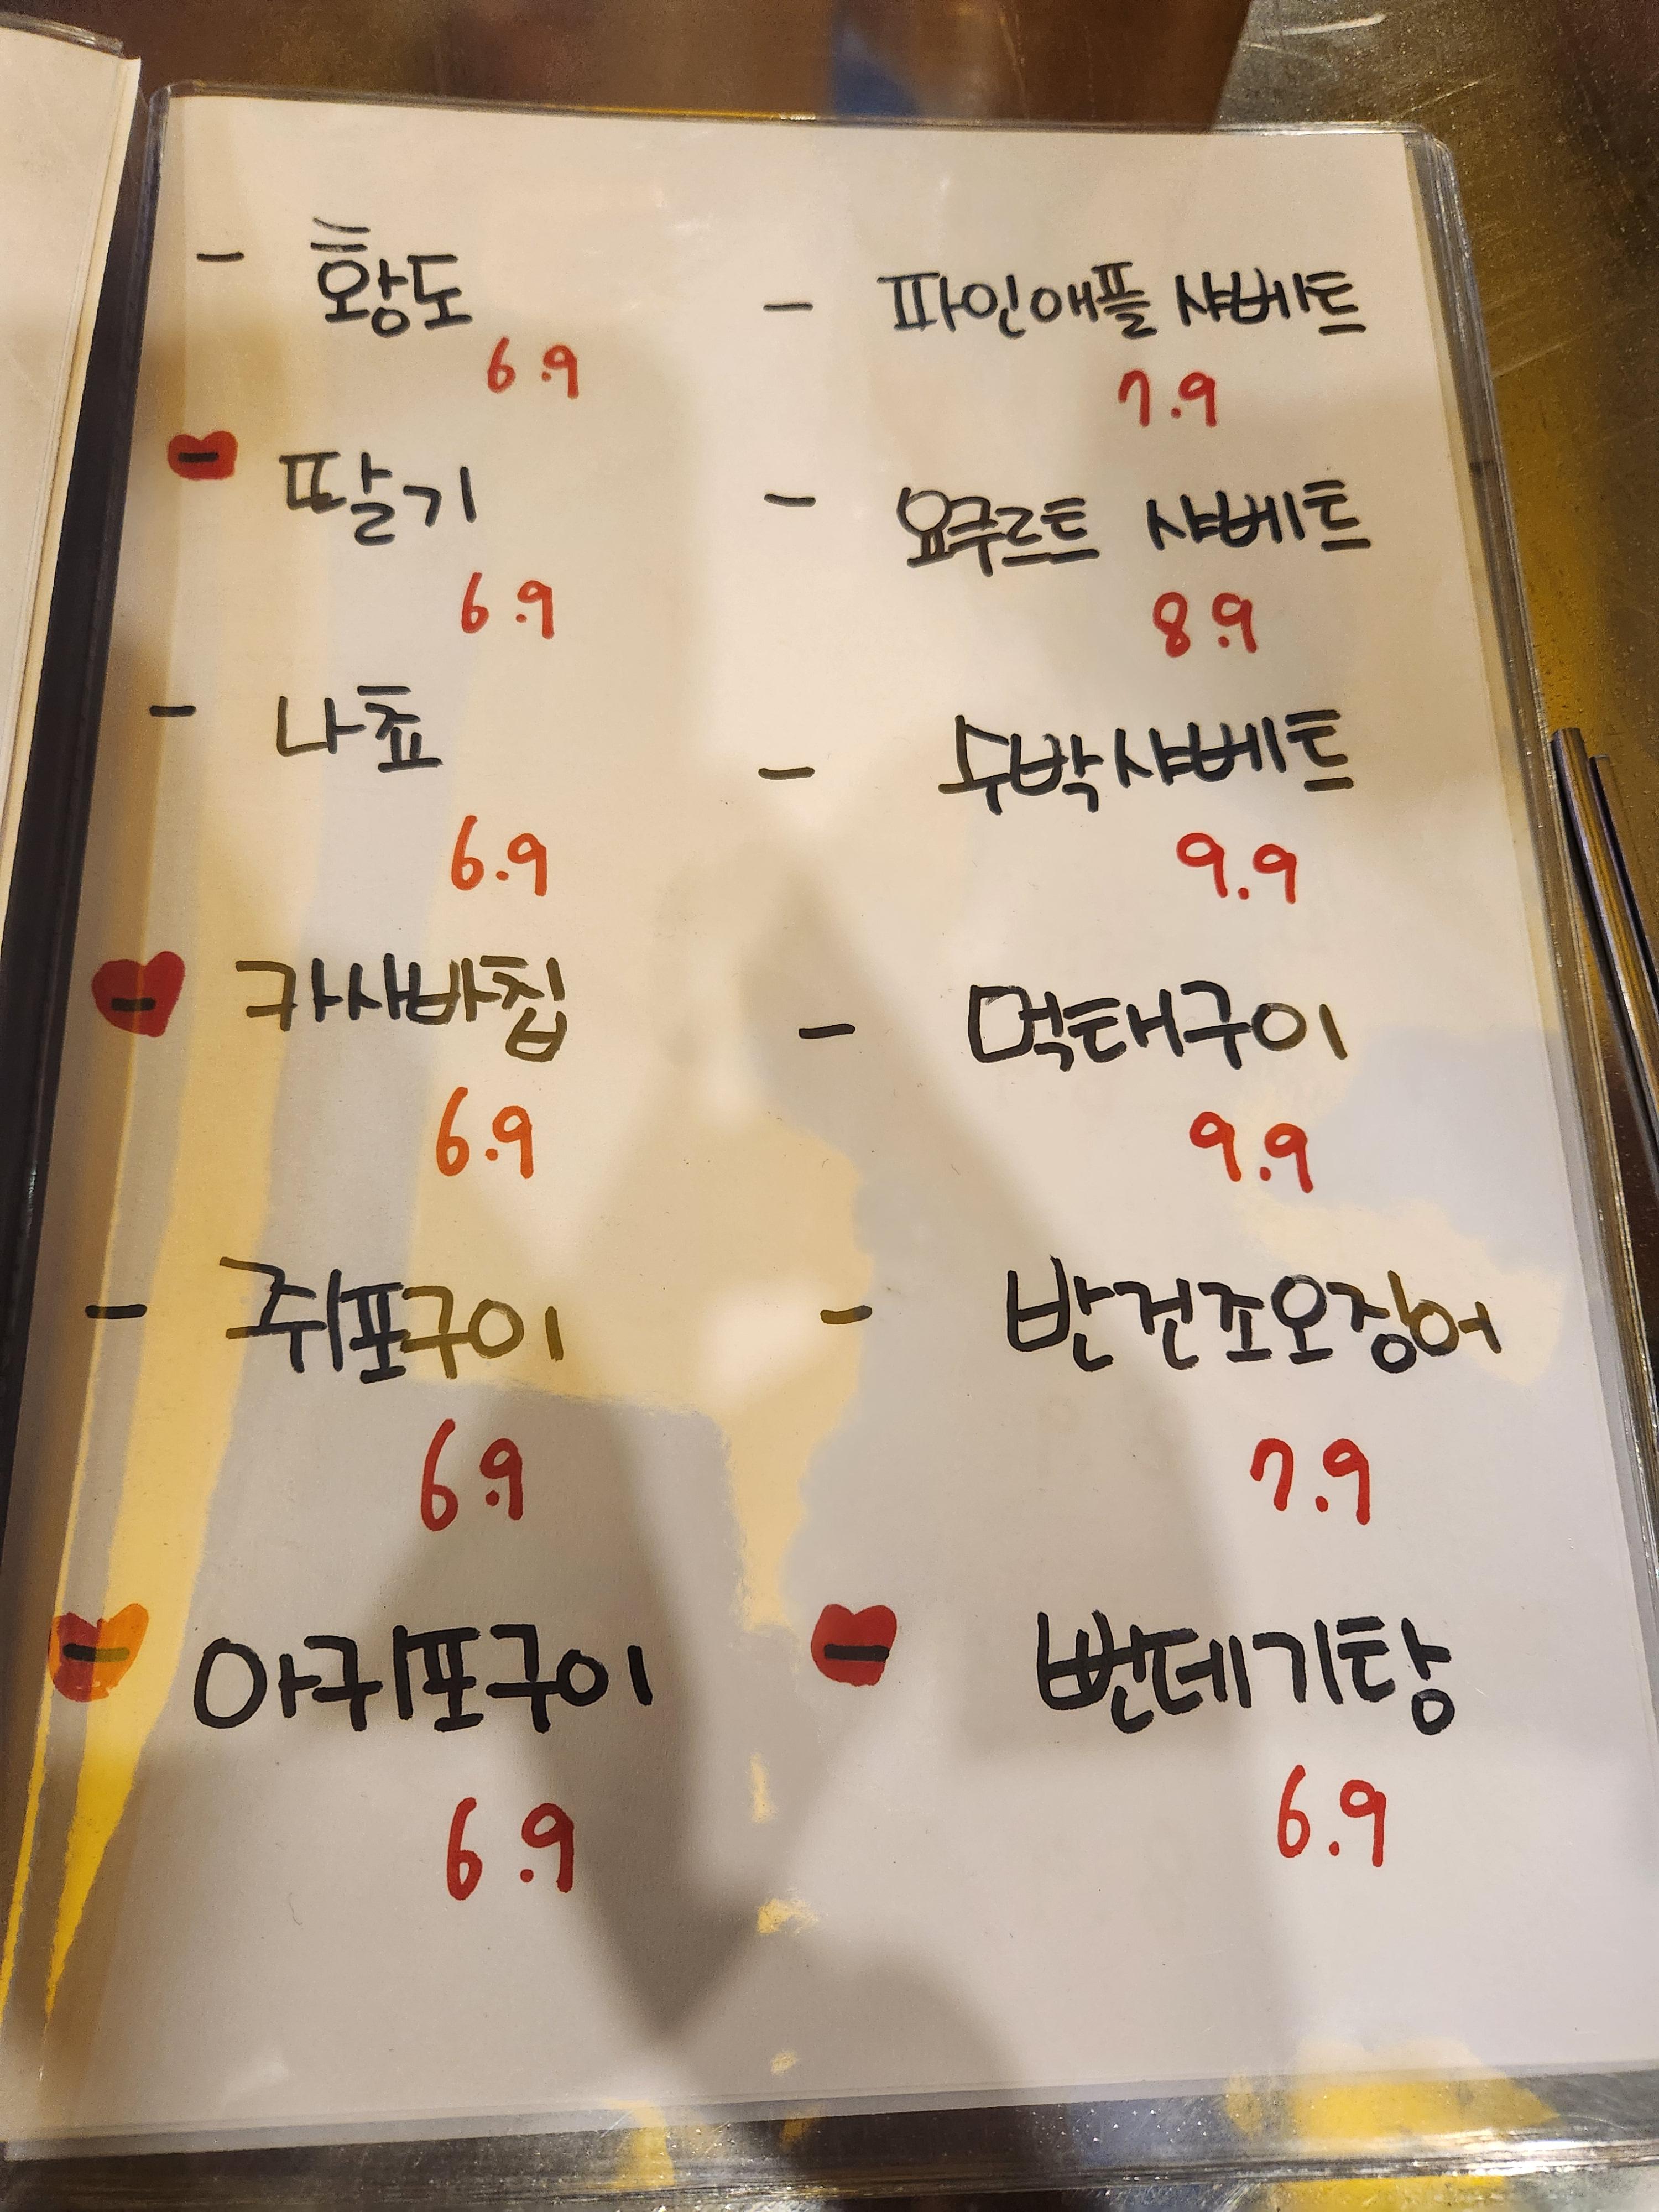 - 황도
6.9
- 딸기
6.9
- 나쵸
6.9
- 카사바칩
6.9
- 쥐포구이
6.9
- 아귀포구이
6.9
- 파인애플 샤베트
7.9
- 요쿠르트 샤베트
8.9
- 수박샤베트
9.9
- 먹태구이
9.9
- 반건조오징어
7.9
- 뻔데기탕
6.9